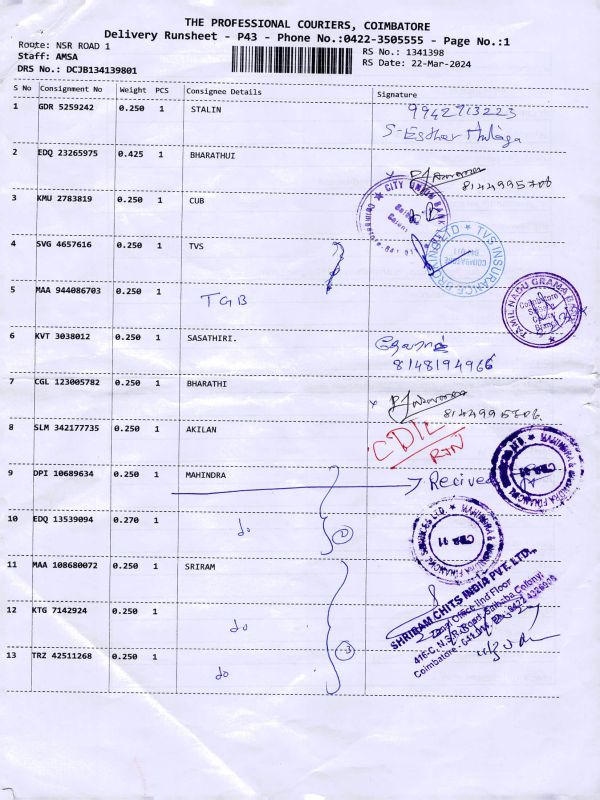 THE PROFESSIONAL COURIERS, COIMBATORE
Delivery Runsheet - P43 - Phone No.:0422-3505555 - Page No.:1
Route: NSR ROAD 1
Staff: AMSA
DRS No.: DCJB134139801
RS No.: 1341398
RS Date: 22-Mar-2024
S No Consignment No Weight PCS Consignee Details Signature
1 GDR 5259242 0.250 1 STALIN 9942713223
2 EDQ 23265975 0.425 1 BHARATHUI
8144995706
3 KMU 2783819 0.250 1 CUB
CITY UNION BANK
4 SVG 4657616 0.250 1 TVS
TVS INSURANCE BROKING LTD
COIMBATORE
5 MAA 944086703 0.250 1 TGB
TAMIL NADU GRAMA BANK
6 KVT 3038012 0.250 1 SASATHIRI.
8148194966
7 CGL 123005782 0.250 1 BHARATHI
8144995706
8 SLM 342177735 0.250 1 AKILAN
CDIL
RTN
9 DPI 10689634 0.250 1 MAHINDRA Recived
MAHINDRA & MAHINDRA FINANCIAL SERVICES LTD.
CBE-01
10 EDQ 13539094 0.270 1 do 2
MAHINDRA & MAHINDRA FINANCIAL SERVICES LTD.
CBE-01
11 MAA 108680072 0.250 1 SRIRAM
SHRIRAM CHITS INDIA PVT. LTD.,
12 KTG 7142924 0.250 1 do 3
13 TRZ 42511268 0.250 1 do